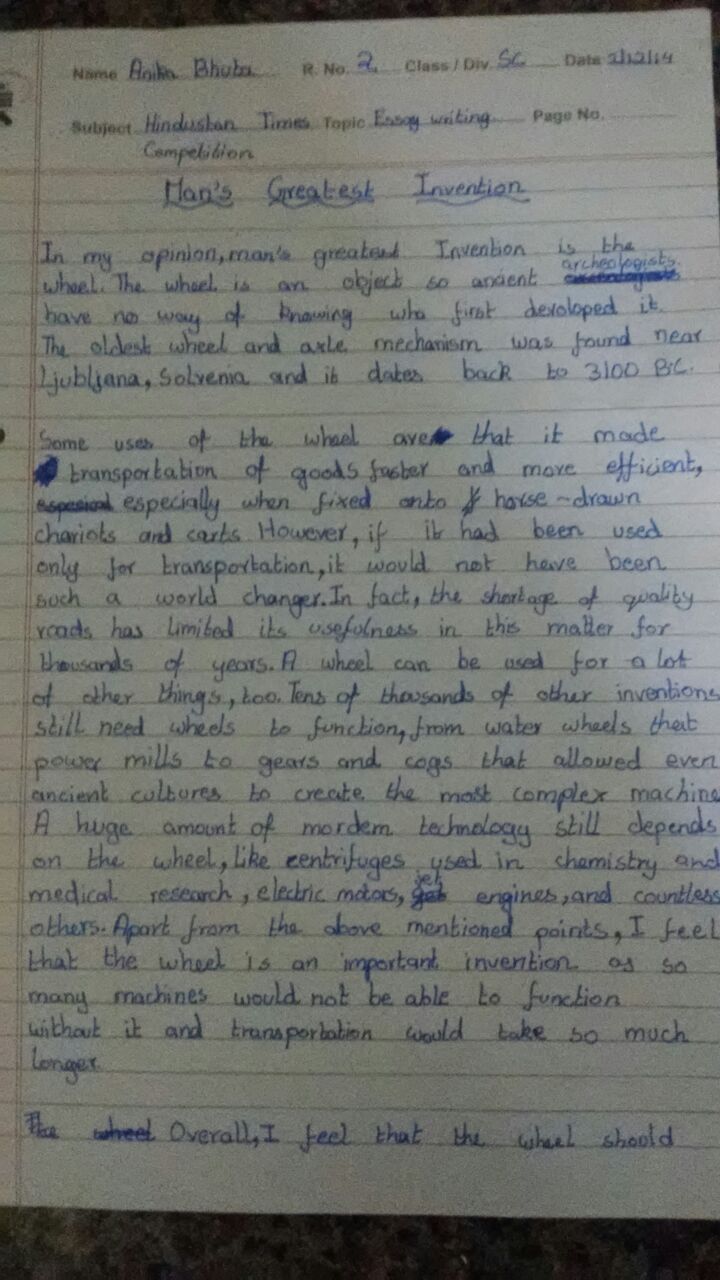 Name Anika Bhuta R. No. 2 Class / Div 5C Date 2/12/14
Subject Hindustan Times Topic Essay writing Page No.
Competition
Man's Greatest Invention
In my opinion, man's greatest Invention is the
wheel. The wheel is an object so ancient archeologists
have no way of knowing who first devoloped it.
The oldest wheel and axle mechanism was found near
Ljubljana, Solvenia and it dates back to 3100 B.C.
Some uses of the wheel are that it made
transportation of goods faster and more efficient,
especially when fixed onto horse-drawn
chariots and carts. However, if it had been used
only for transportation, it would not have been
such a world changer. In fact, the shortage of quality
roads has limited its usefulness in this matter for
thousands of years. A wheel can be used for a lot
of other things, too. Tens of thousands of other inventions
still need wheels to function, from water wheels that
power mills to gears and cogs that allowed even
ancient cultures to create the most complex machine
A huge amount of mordern technology still depends
on the wheel, like centrifuges used in chemistry and
medical research, electric motors, jet engines, and countless
others. Apart from the above mentioned points, I feel
that the wheel is an important invention as so
many machines would not be able to function
without it and transportation would take so much
longer.
The wheel Overall, I feel that the wheel should